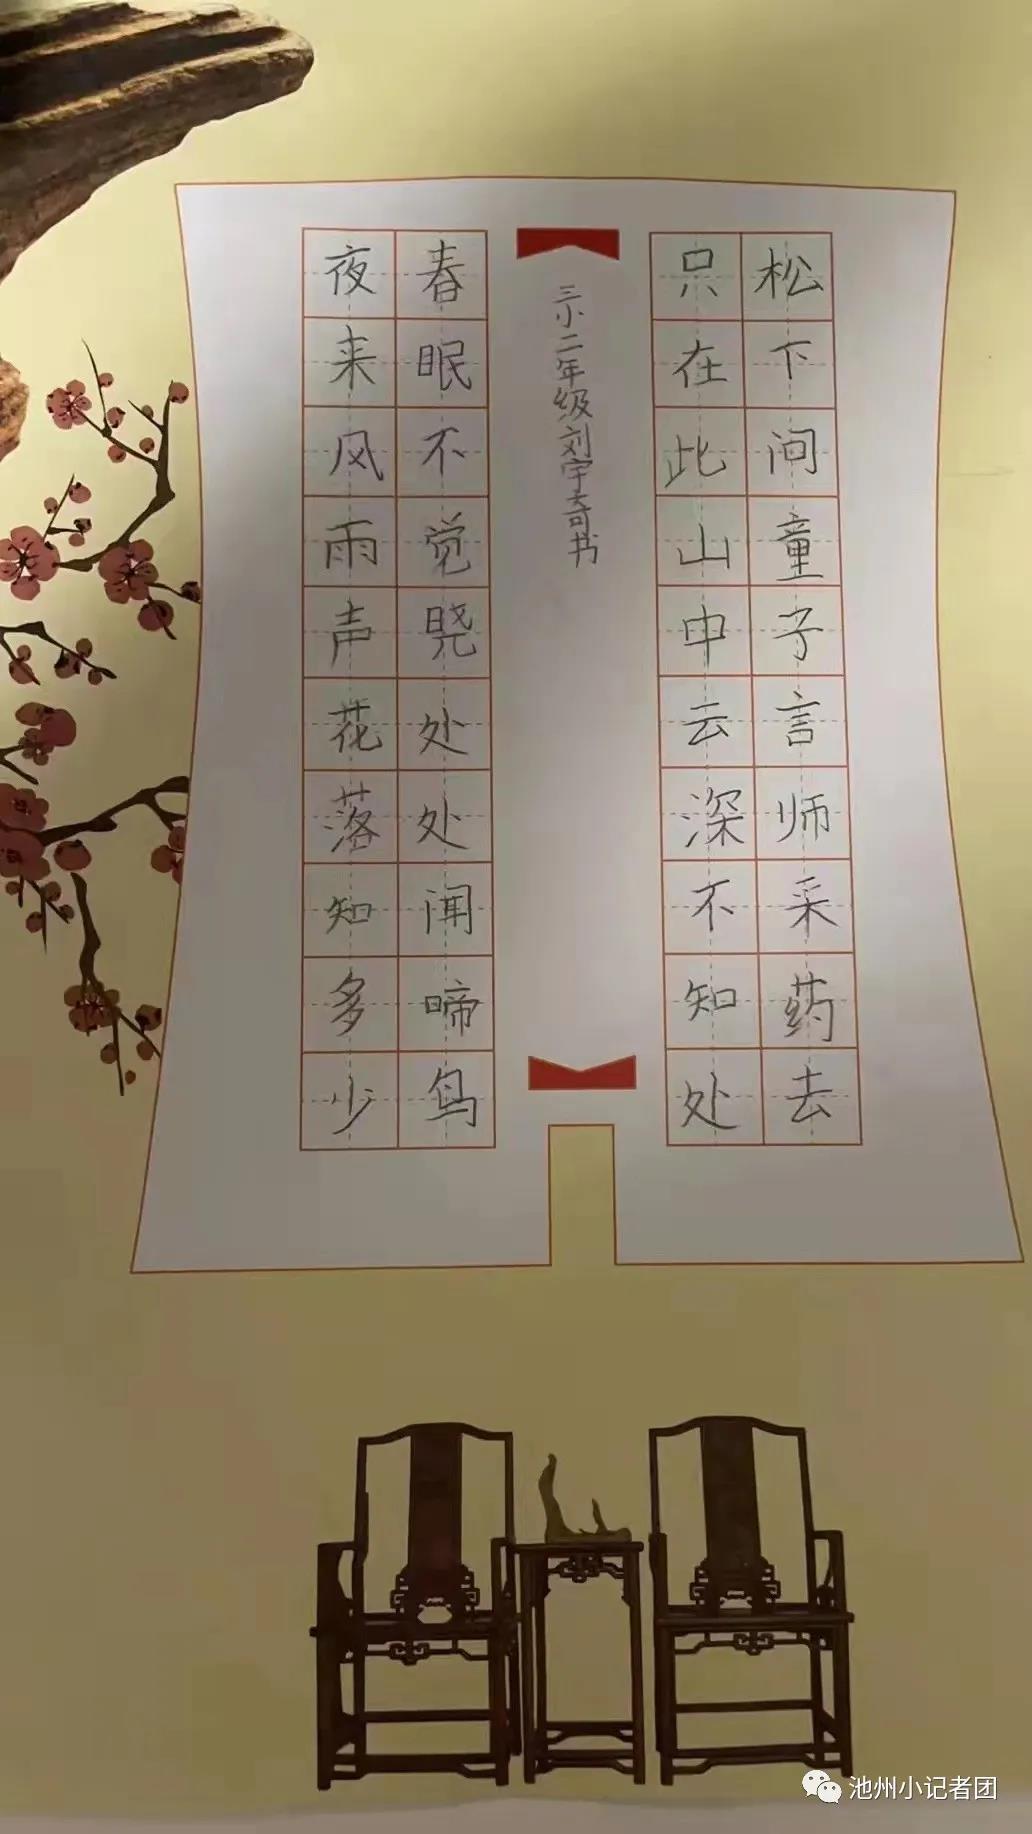 松下问童子言师采药去
只在此山中云深不知处
三小二年级刘宇奇书
春眠不觉晓处处闻啼鸟
夜来风雨声花落知多少
池州小记者团